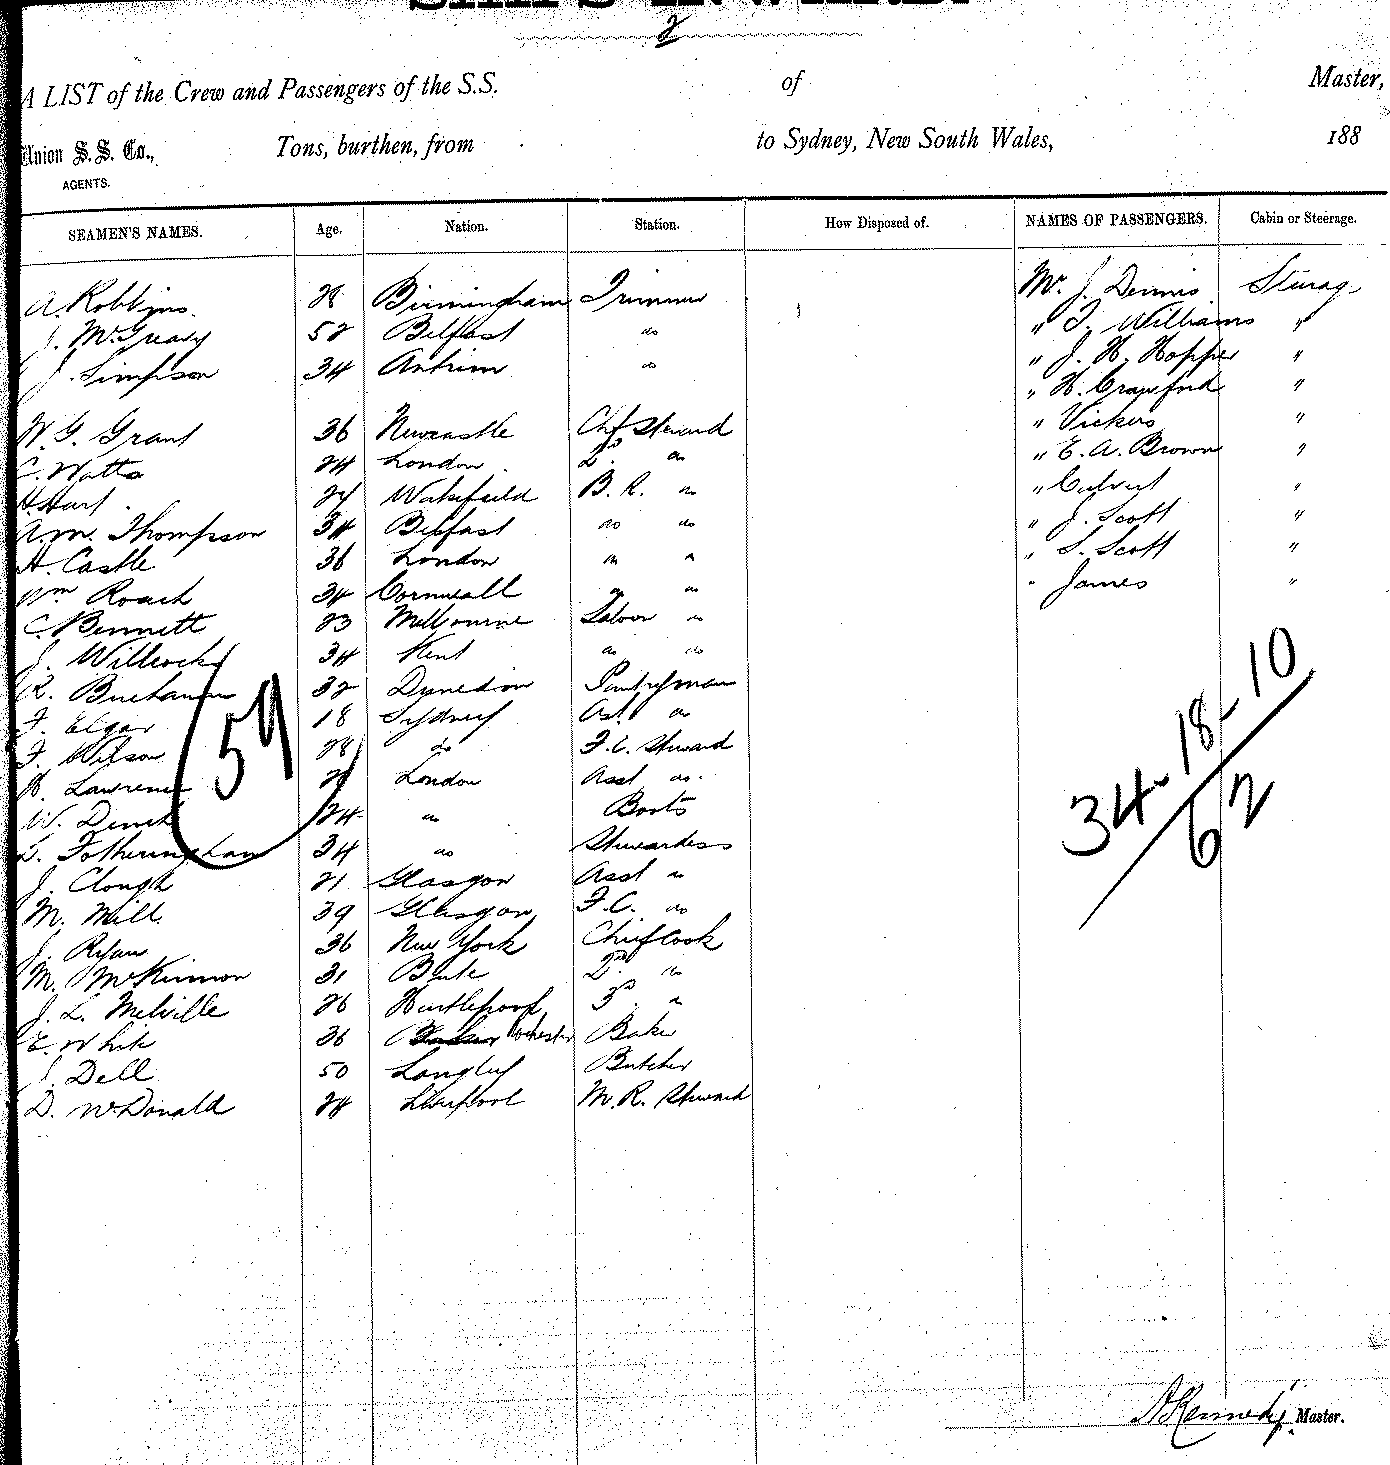 2
A LIST of the Crew and Passengers of the S.S. of Master,
Union S.S. Co., Tons, burthen, from to Sydney, New South Wales, 188
AGENTS.
SEAMEN'S NAMES. Age. Nation. Station. How Disposed of. NAMES OF PASSENGERS. Cabin or Steerage.
A. Robbins. 28 Birmingham Trimmer Mr. J. Dennis Sturag
J. McGreavy 52 Belfast do " T. Williams "
J. Simpson 34 Antrim do " J. H. Hopper "
" H. Crawford "
W. G. Grant 36 Newcastle Chf Steward " Vickers "
C. Watts 24 London 2d do " E. A. Brown "
H. Hart 24 Wakefield B. R. do " Culvert "
A. M. Thompson 34 Belfast do do " J. Scott "
H. Castle 36 London do do " S. Scott "
Wm Roach 34 Cornwall do do " James "
C. Bennett 23 Melbourne Saloon do
J. Willcocks 34 Kent do do
R. Buchanan 32 Dunedin Pantryman
F. Elgar 18 Sydney Ast do
F. Wilson 28 do F. C. Steward
H. Lawrence London Asst do
W. 24 do Boots
L. Fotheringham 34 do Stewardess
J. Clough 21 Glasgow Asst do
M. Mill 39 Glasgow F. C. do
J. Ryan 36 New York Chief Cook
M. McKinnon 31 Bute 2nd do
J. L. Melville 26 Hartlepool 3rd do
E. White 36 Baker
J. Dell 50 Langley Butcher
D. McDonald 24 Liverpool M. R. Steward
34-18-10
62
A Kennedy Master.